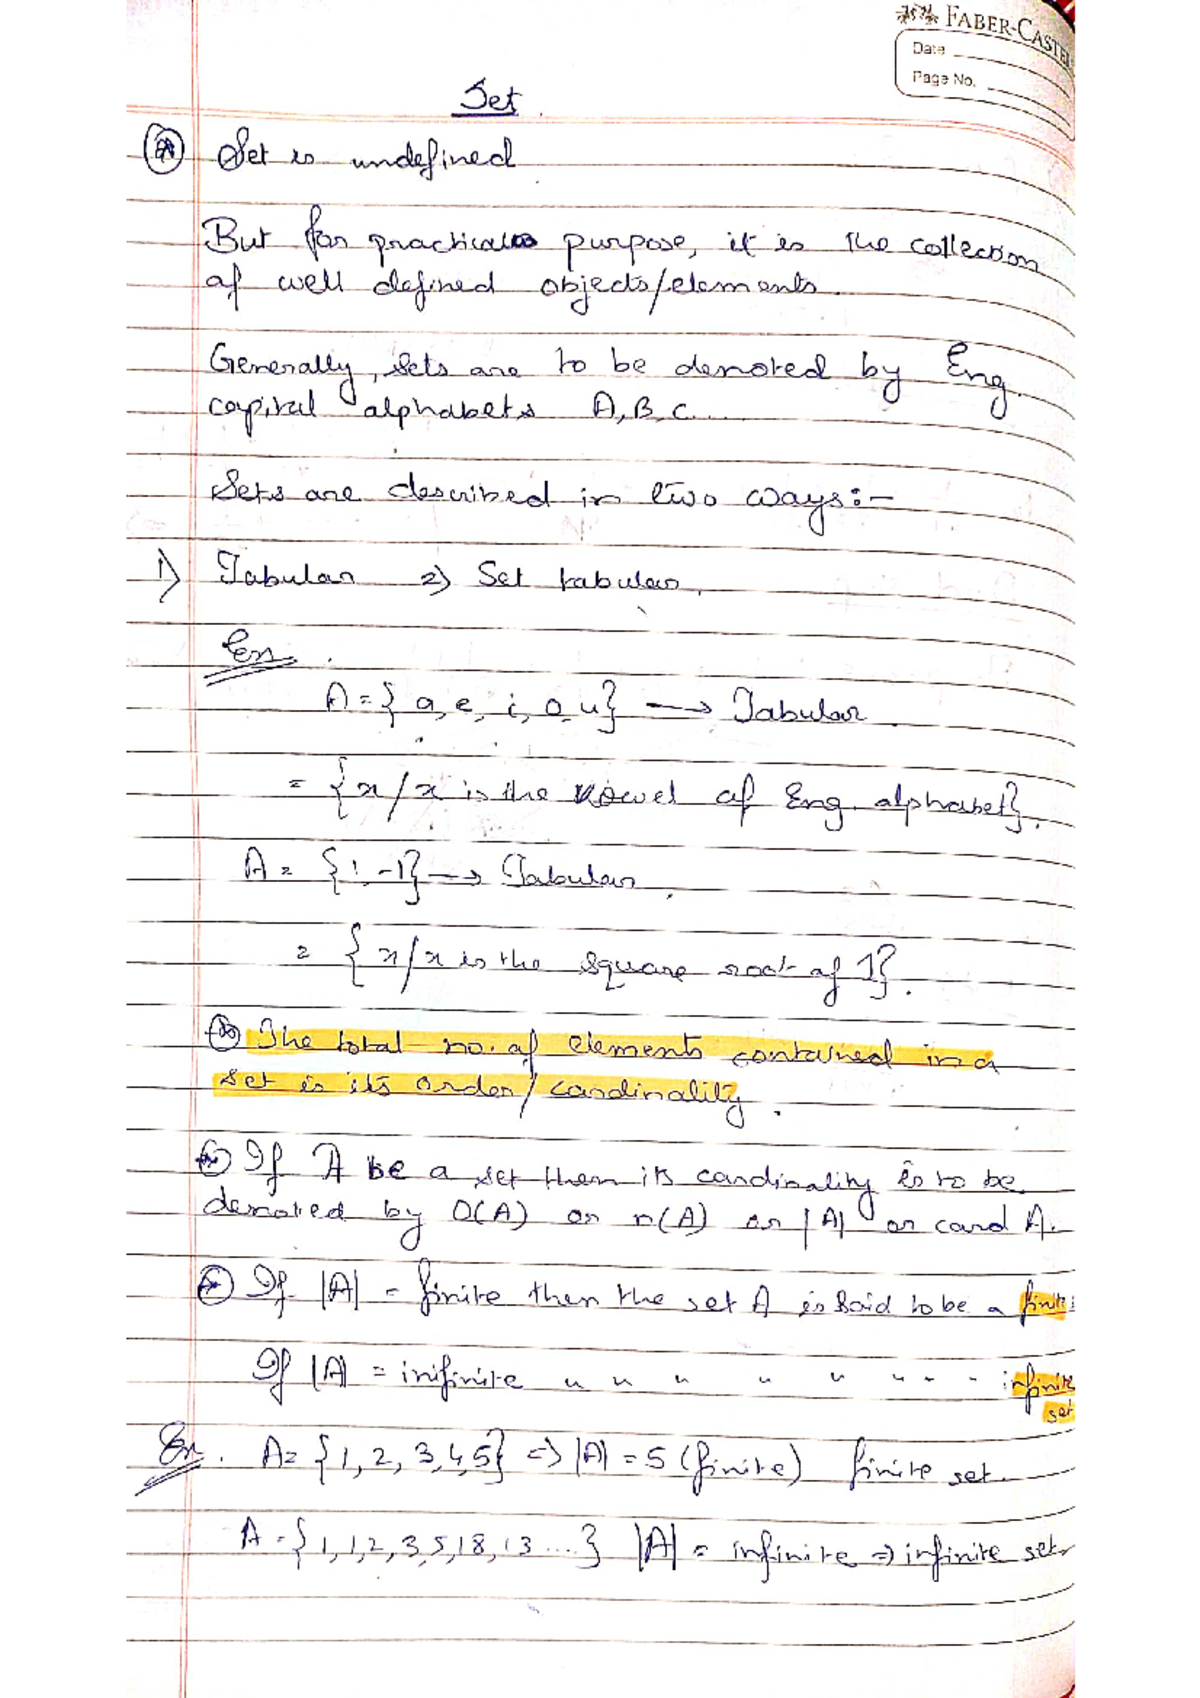 FABER-CASTEL
Date
Page No.
Set
Set is undefined
But for practical purpose, it is the collection
of well defined objects/elements.
Generally, sets are to be denoted by Eng.
capital alphabets A, B, C...
Sets are described in two ways:-
1) Tabular 2) Set tabular.
Ex.
A = { a, e, i, o, u} → Tabular.
= {x/x is the vowel of Eng. alphabet}.
A = {1, -1} → Tabular.
= {x/x is the square root of 1}.
The total no. of elements contained in a
set is its order/cardinality.
If A be a set then its cardinality is to be
denoted by O(A) or n(A) or |A| or card A.
If |A| = finite then the set A is said to be a finite
If |A| = inifinite " " " " " " " " infinite
set
Ex. A= {1, 2, 3, 4, 5} => |A| = 5 (finite) finite set.
A = {1, 1, 2, 3, 5, 18, 13 ....} |A| = infinite => infinite set.